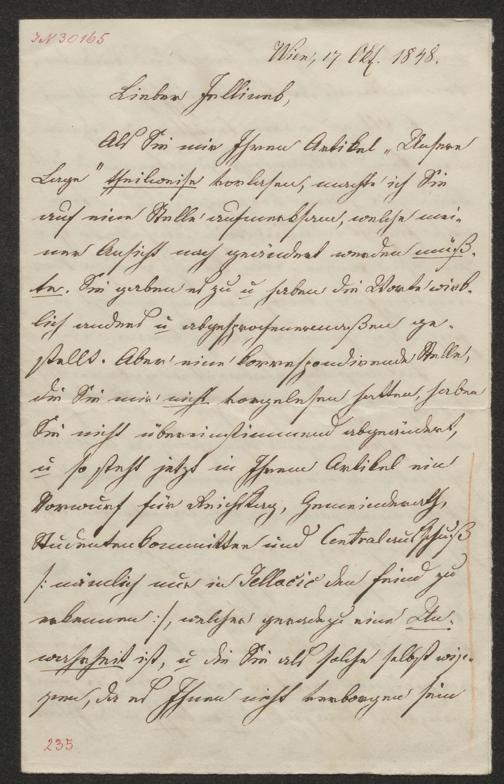 JN 30165
Wien, 17 Okt. 1848.
Lieber Jellinek,
Als Sie mir Ihren Artikel „Unsere
Lage" theilweise vorlasen, machte ich Sie
auf eine Stelle aufmerksam, welche mei-
ner Ansicht nach geändert werden müß-
te. Sie gaben es zu u haben die Worte wirk-
lich anders u abgesprochenermaßen ge-
stellt. Aber eine korrespondirende Stelle,
die Sie mir nicht vorgelesen hatten, haben
Sie nicht übereinstimmend abgeändert,
u so steht jetzt in Ihrem Artikel ein
Vorwurf für Reichstag, Gemeinderath,
Studentenkommittee und Centralausschuß
/: nämlich nur in Jellačić den Feind zu
erkennen :/, welcher geradezu eine Un-
wahrheit ist, u die Sie als solche selbst wis-
sen, da es Ihnen nicht verborgen sein
235